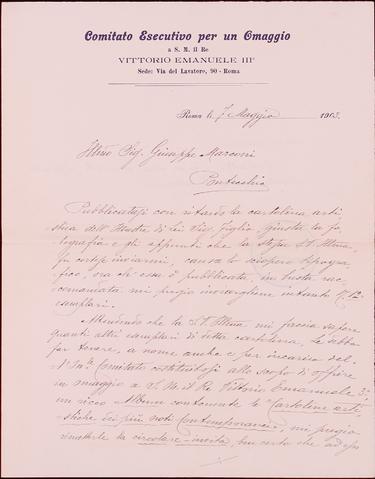 Comitato Esecutivo per un Omaggio
a S. M. il Re
VITTORIO EMANUELE III°
Sede: Via del Lavatore, 90 - Roma
Roma li 7 Maggio 1903.
Illmo Sig. Giuseppe Marconi
Pontecchio
Pubblicatasi con ritardo la cartolina arti-
stica dell'Illustre di Lei Sig. Figlio, giusta la fo-
tografia e gli appunti che la stessa S. V. Illma
inviarmi, causa lo sciopero tipogra-
fico, ora ch'essa è pubblicata, in busta rac-
comandata mi pregio intanto
esemplari.
Attendendo che la S. V. Illma mi faccia sapere
quanti altri esemplari di detta cartolina, le debba
far tenere, a nome anche e per incarico del-
l' Comitato costituitosi allo scopo di offrire
in omaggio a S. M. il Re Vittorio Emanuele 3°,
un ricco Album contenente le "Cartoline arti-
stiche dei più noti Contemporanei", mi pregio
rimetterle la circolare-invito, ben certo che ad essa